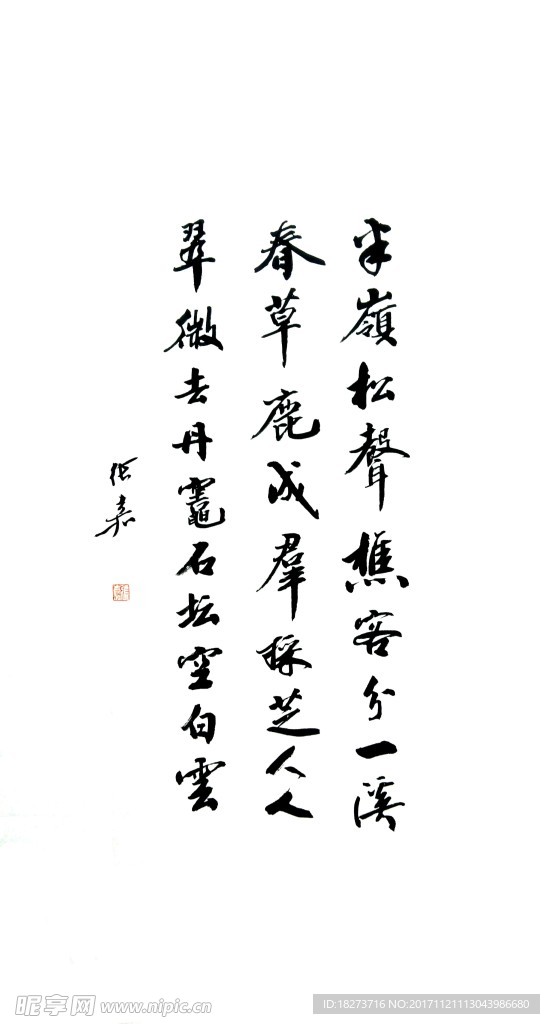 半嶺松聲樵客分一溪
春草鹿成羣採芝人入
翠微去丹竈石坛空白雲
張嘉
昵享网 www.nipic.cn
ID:18273716 NO:20171121113043986680